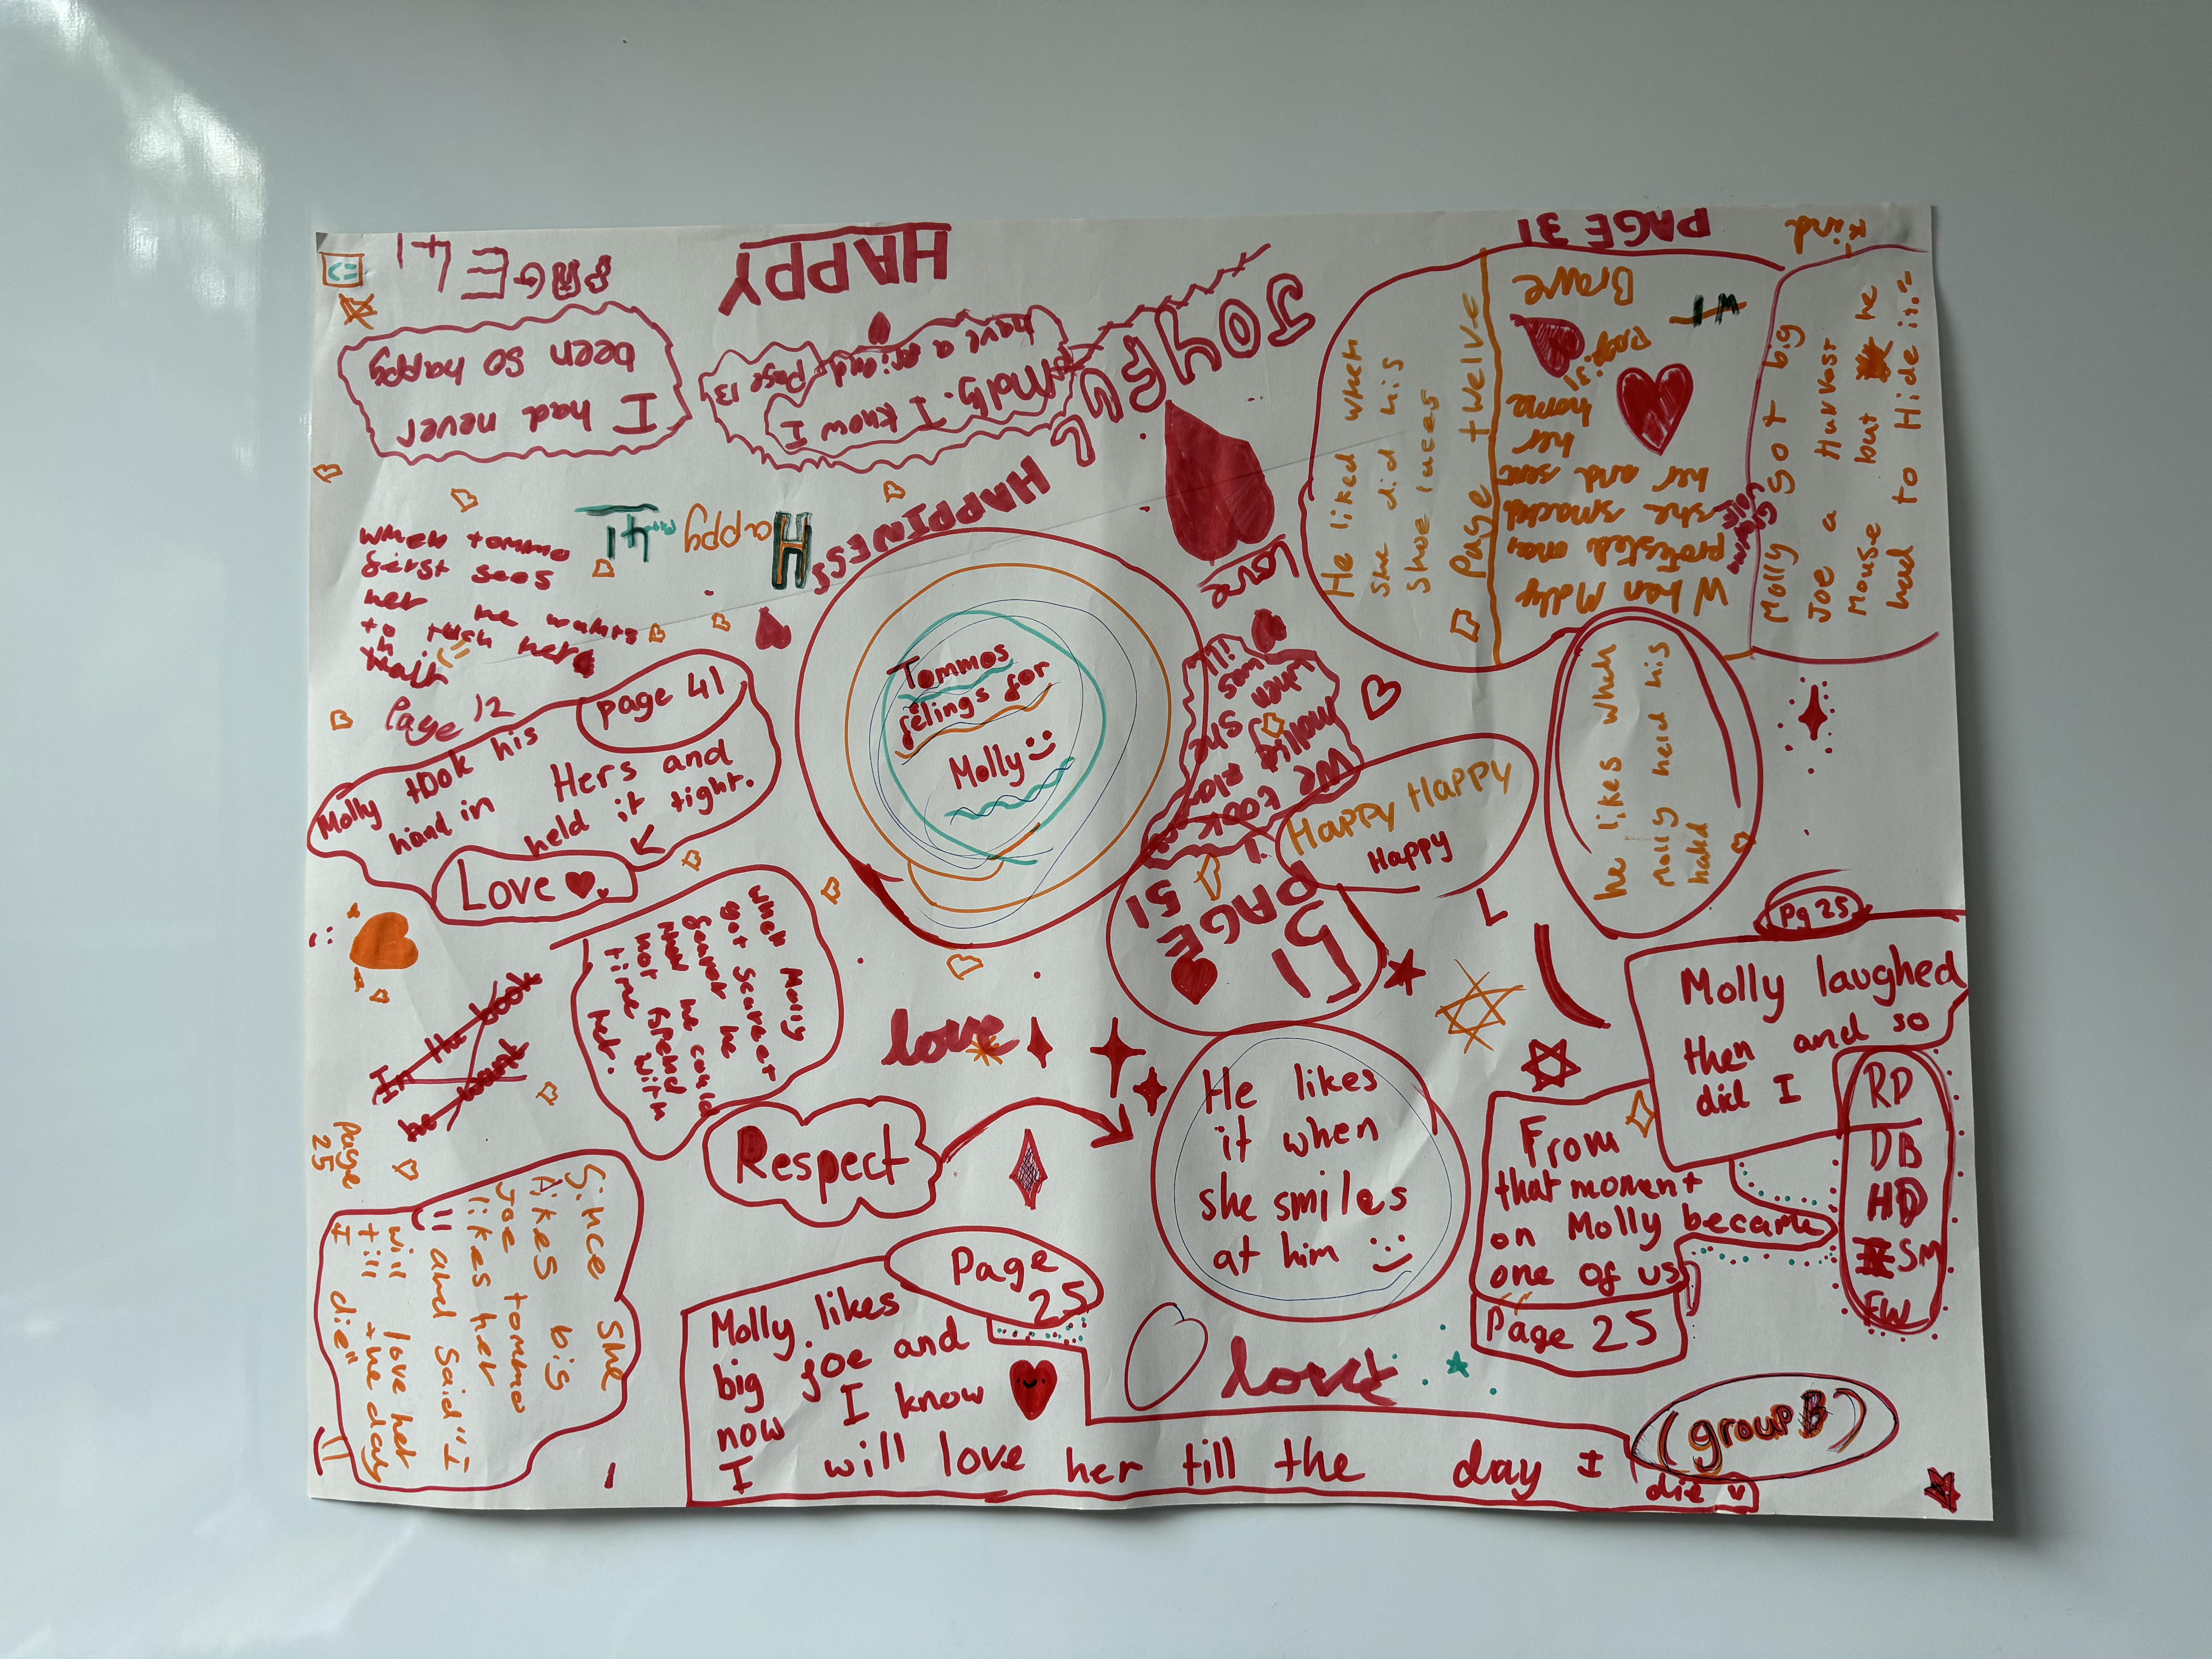 PAGE 41
I had never
been so happy
HAPPY
Molly. I know I
have a friend page 13
JOYFUL
HAPPINESS
Happy
P 41
when tommo
first sees
her he wants
to
Page 12
page 41
Molly took his
hand in Hers and
held it tight.
Love
Tommos
felings for
Molly
love
We took
mollie
when she
was ill
PAGE 51
51
PAGE 31
He liked when
she did his
shoe laces
Page twelve
Brave
When Molly
protested
she smacked
her and sent
her home
kind
Molly got big
Joe a Harvest
Mouse but he
had to Hide it
he likes when
Molly held his
Happy Happy
Happy
when Molly
got Scarlet
fever he
now he could
not spend
time with
her.
In the book
he want
love
Respect
He likes
it when
she smiles
at him
Pg 25
Molly laughed
then and so
did I
RD
DB
HD
SM
FW
From
that moment
on Molly became
one of us
Page 25
Page
25
Since she
likes big
Joe tommo
likes her
and said "I
will love her
till the day
I die"
Page
25
Molly likes
big joe and
now I know
I will love her till the day I
die
love
(group B)